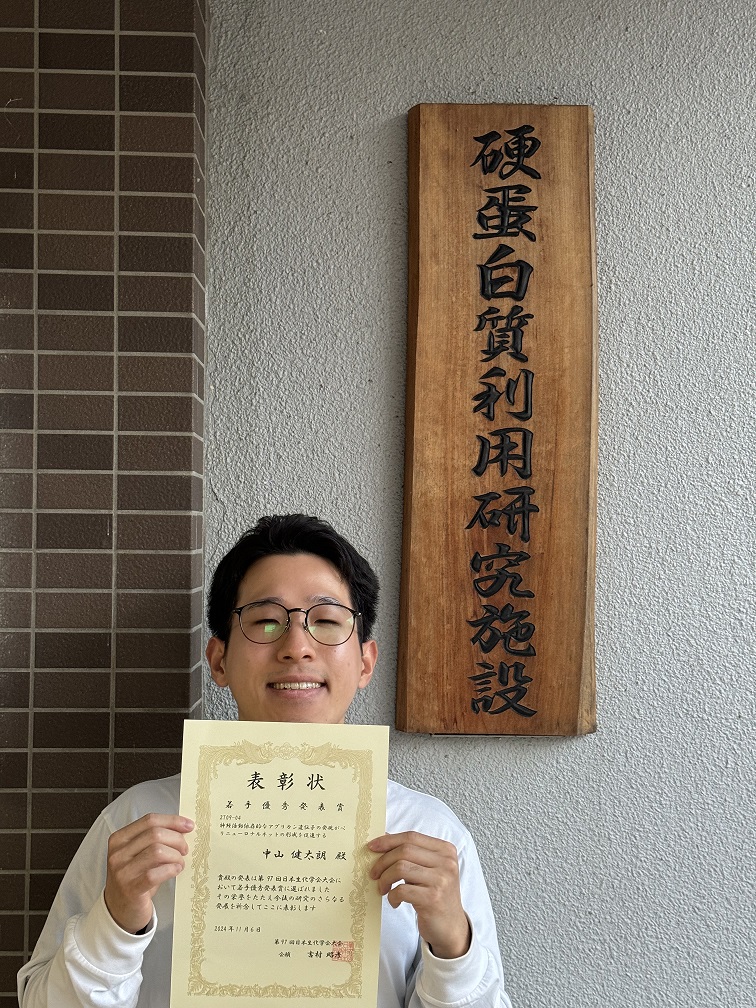 硬蛋白質利用研究施設
表彰状
若手優秀発表賞
2T09-04
神経活動依存的なアグリカン遺伝子の発現がペ
リニューロナルネットの形成を促進する
中山 健太朗 殿
貴殿の発表は第97回日本生化学会大会に
おいて若手優秀発表賞に選ばれました
その栄誉をたたえ今後の研究のさらなる
発展を祈念してここに表彰します
2024年11月6日
第97回日本生化学会大会
会頭 吉村 昭彦